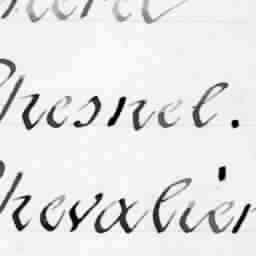 Chesnel.
Chevalier